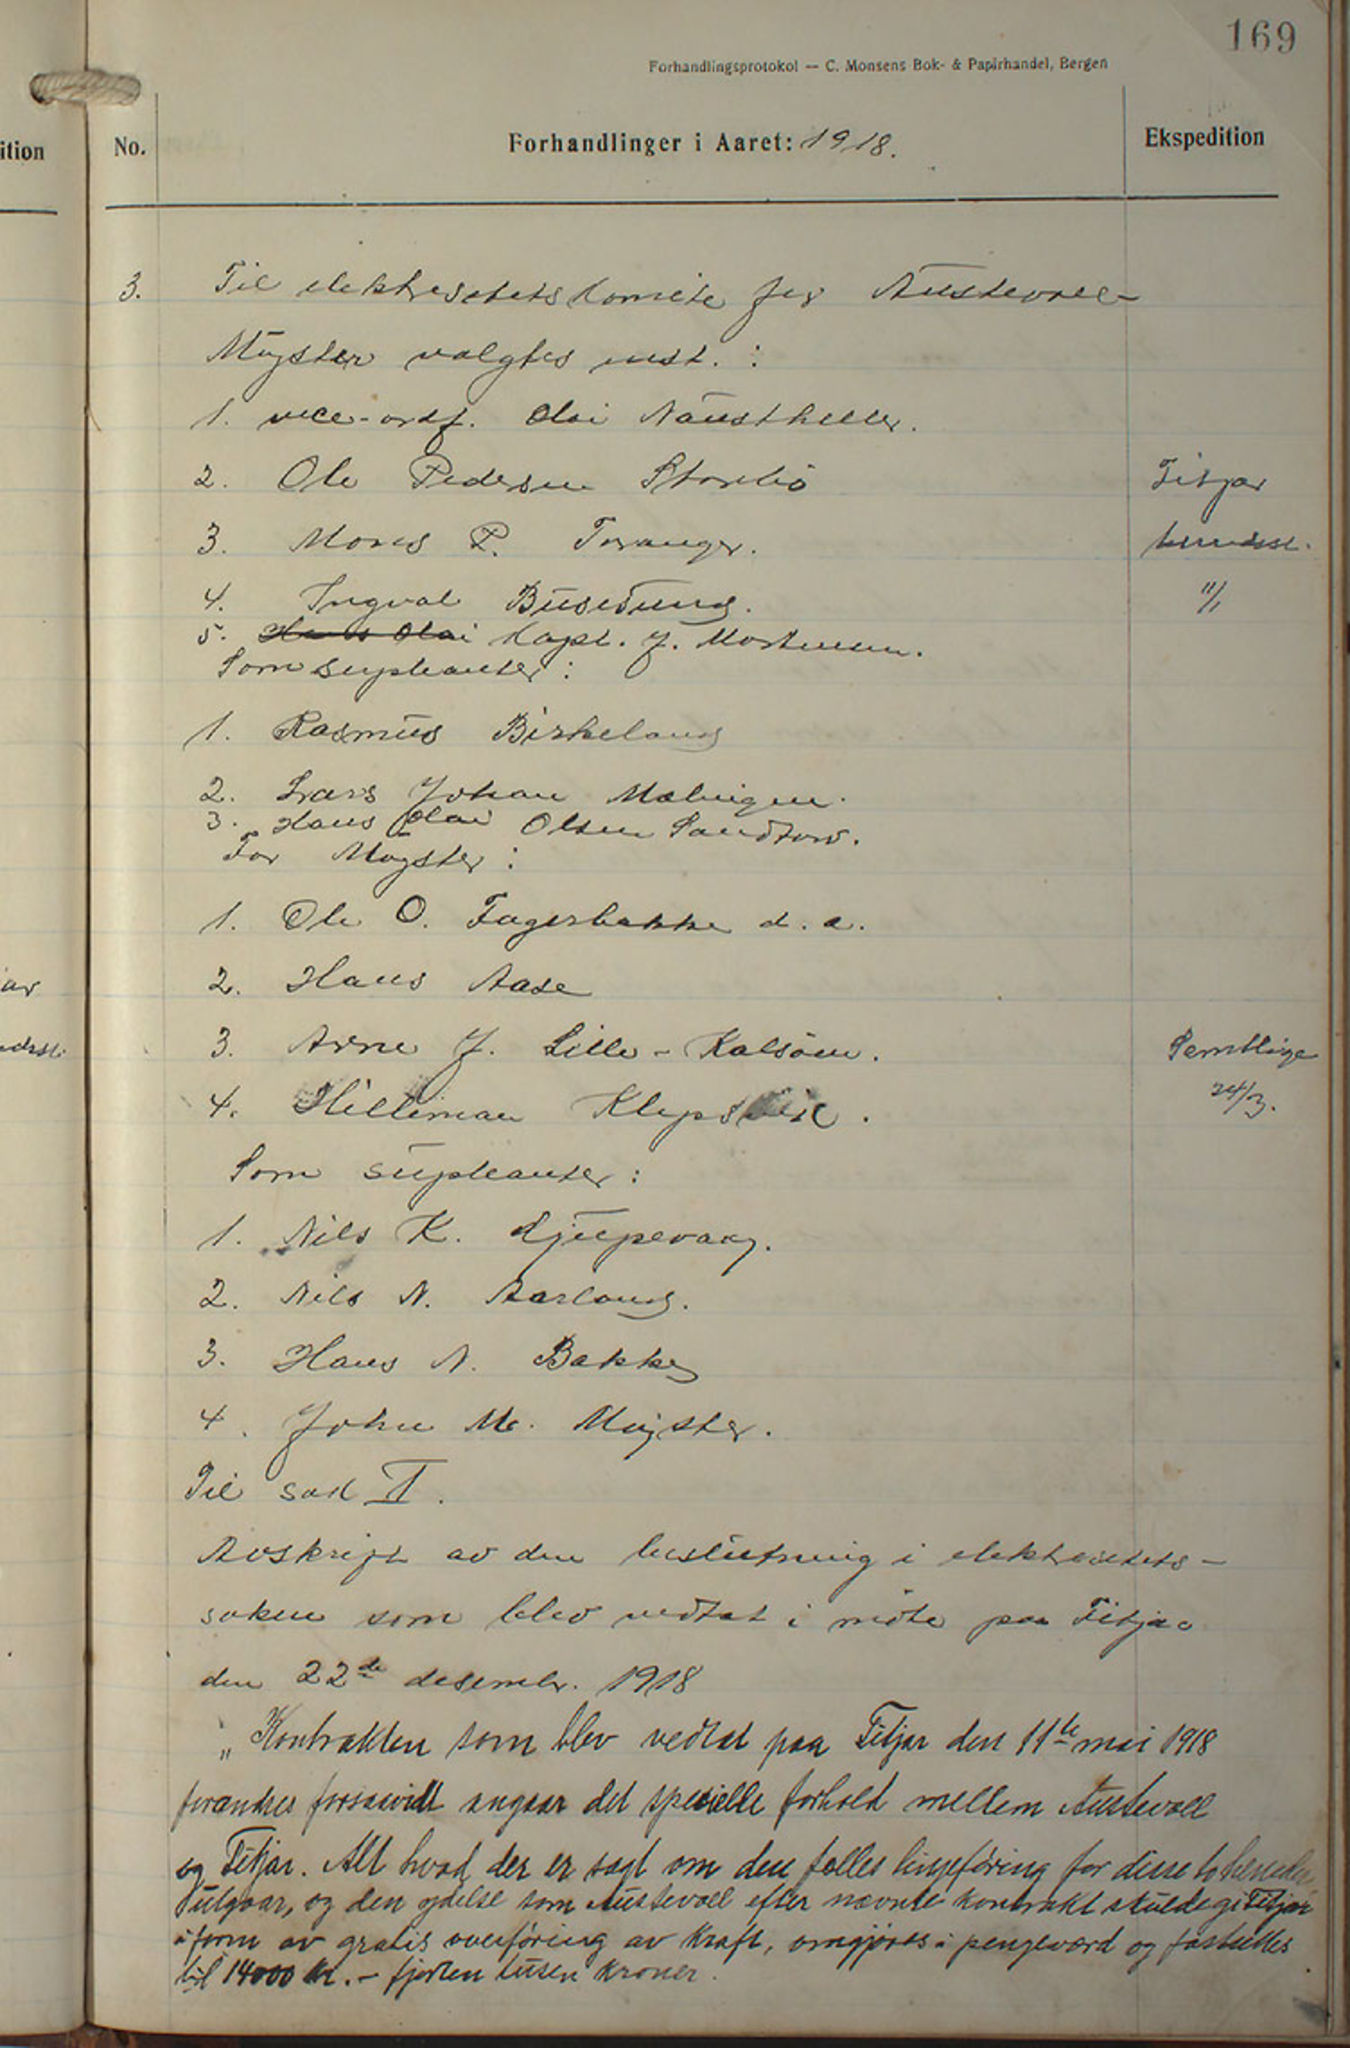 169
Forhandlingsprotokol — C. Monsens Bok- & Papirhandel, Bergen
ition
No.
Forhandlinger i Aaret: 1918.
Ekspedition
3. Til elektresetetskomite for Austevoll-
Møgster valgtes enst. :
1. vice-ordf. Olai Naustheller.
2. Ole Pedersen Storebö
Fitjar
3. Mons P. Toranger.
herredsst.
4. Ingval Busesund.
11/1
5. Hans Olai Kapt. J. Mortensen.
Som supleanter :
1. Rasmus Birkeland
2. Lars Johan Mælingen.
3. Hans Olai Olsen Sandtorv.
For Møgster :
1. Ole O. Fagerbakke d. a.
2. Hans Aase
ar
3. Arne J. Lille-Kalsöen.
Samtlige
edsst.
4. Hilleman Klepsvik.
24/3.
Som supleanter :
1. Nils K. Djupevaag.
2. Nils N. Aarland.
3. Hans N. Bakke
4. John M. Møgster.
Til sak II.
Avskrift av den beslutning i elektresetets-
saken som blev vedtat i möte paa Fitjar
den 22de desember. 1918
„Kontrakten som blev vedtat paa Fitjar den 11te mai 1918
forandres forsaavidt angaar det specielle forhold mellem Austevoll
og Fitjar. Alt hvad der er sagt om den fælles linjeföring for disse to herreder
utgaar, og den ydelse som Austevoll efter nævnte kontrakt skulde gi Fitjar
i form av gratis overföring av kraft, omgjöres i pengeværd og fastsettes
til 14000 kr. - fjorten tusen kroner.